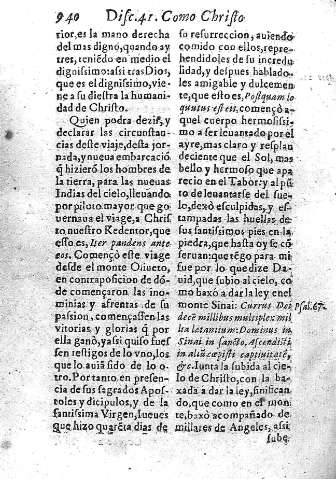 940 Disc.41. Como Christo
rior, es la mano derecha
del mas digno, quando ay
tres, teniẽdo en medio el
dignissimo: assi tras Dios,
que es el dignissimo, vie-
ne a su diestra la humani-
dad de Christo.
Quien podra dezir, y
declarar las circunstan-
cias deste viaje, desta jor-
nada, y nueua embarcaciõ
q̃ hizierõ los hombres de
la tierra, para las nueuas
Indias del cielo, lleuando
por piloto mayor que go-
uernaua el viage, a Chris-
to nuestro Redentor, que
esto es, Iter pandens ante
eos. Començò este viage
desde el monte Oliuete,
en contraposicion de dõ-
de començaron las ino-
minias y afrentas de su
passion, començassen las
vitorias y glorias q̃ por
ella ganò, y assi quiso fues
sen testigos de lo vno, los
que lo auiã sido de lo o-
tro. Por tanto en presen-
cia de sus sagrados Apos-
toles y dicipulos, y de la
santissima Virgen, jueues
que hizo quarẽta dias de
su resurreccion, auiendo
comido con ellos, repre-
hendidoles de su incredu
lidad, y despues hablado-
les amigable y dulcemen-
te, que esto es, Postquam lo
quutus est eis, començò a-
quel cuerpo hermosissi-
mo a ser leuantado por el
ayre, mas claro y resplan
deciente que el Sol, mas
bello y hermoso que apa-
recio en el Tabor: y al pũ
to de leuantarse del sue-
lo, dexò esculpidas, y es-
tampadas las huellas de
sus santissimos pies en la
piedra, que hasta oy se cõ
seruan: que tẽgo para mi
fue por lo que dize Da-
uid, que subio al cielo, co
mo baxò a dar la ley en el
monte Sinai: Currus Dei
decẽ millibus multiplex mil
lia lætantium: Dominus in
Sinai in sancto. Ascendisti
in altũ cœpisti captiuitatẽ,
&c. Iunta la subida al cie-
lo de Christo, con la ba-
xada a dar la ley, sinifican
do, que como en el mon-
te, baxò acompañado de
millares de Angeles, assi
sube
Psal.67.